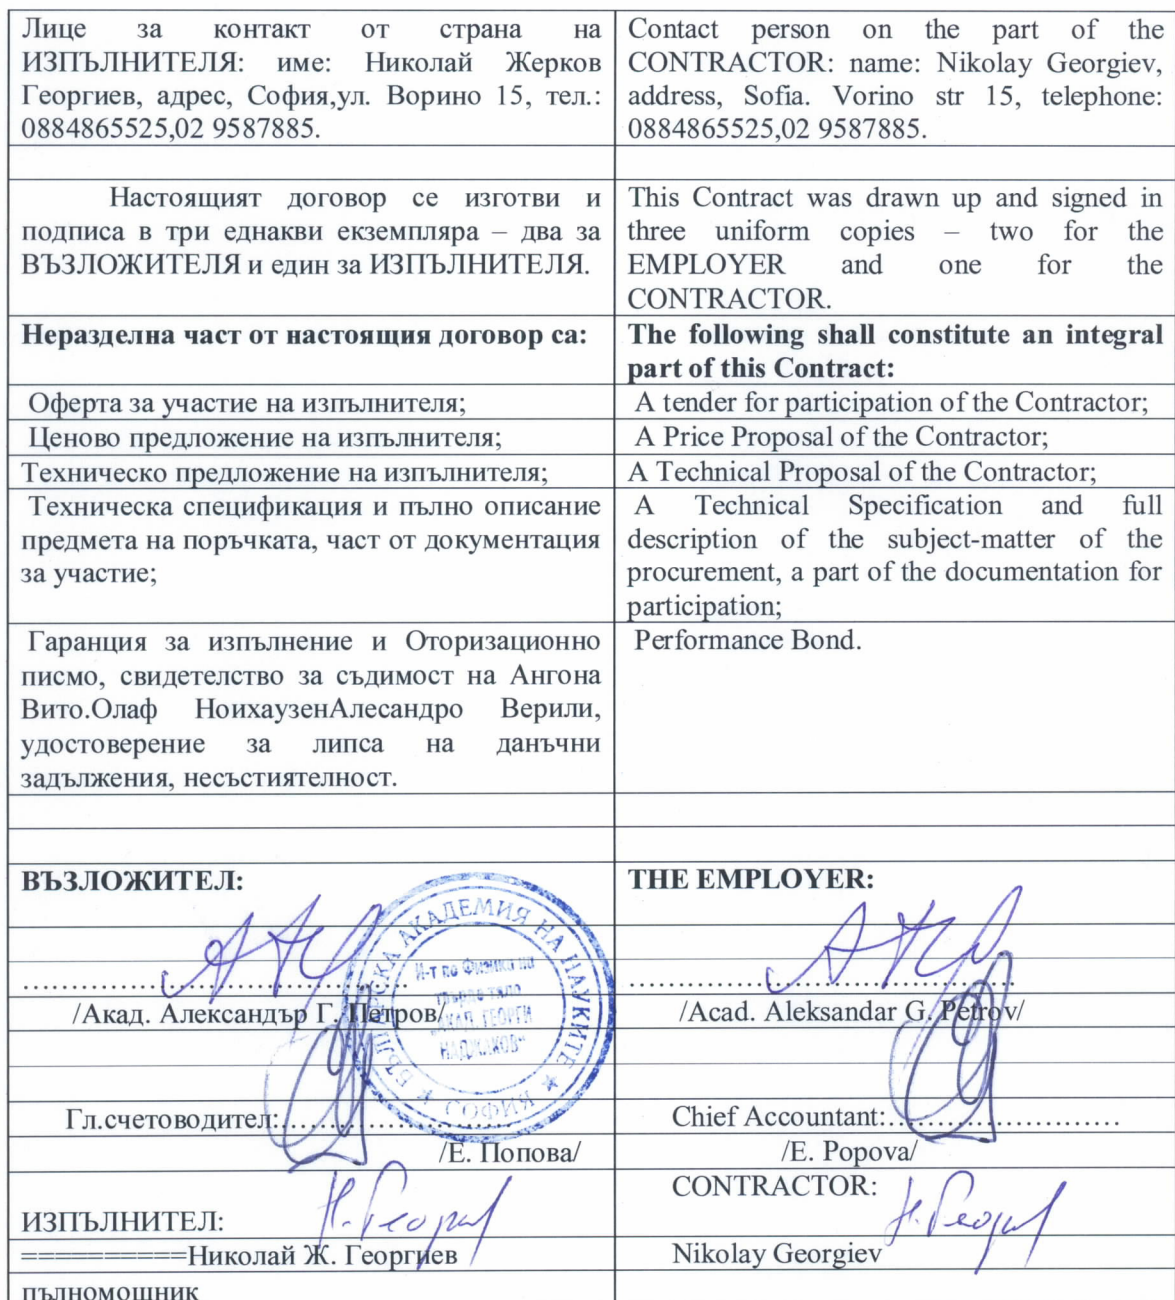 Лице за контакт от страна на
ИЗПЪЛНИТЕЛЯ: име: Николай Жерков
Георгиев, адрес, София,ул. Ворино 15, тел.:
0884865525,02 9587885.
Contact person on the part of the
CONTRACTOR: name: Nikolay Georgiev,
address, Sofia. Vorino str 15, telephone:
0884865525,02 9587885.
Настоящият договор се изготви и
подписа в три еднакви екземпляра – два за
ВЪЗЛОЖИТЕЛЯ и един за ИЗПЪЛНИТЕЛЯ.
This Contract was drawn up and signed in
three uniform copies – two for the
EMPLOYER and one for the
CONTRACTOR.
Неразделна част от настоящия договор са:
The following shall constitute an integral
part of this Contract:
Оферта за участие на изпълнителя;
A tender for participation of the Contractor;
Ценово предложение на изпълнителя;
A Price Proposal of the Contractor;
Техническо предложение на изпълнителя;
A Technical Proposal of the Contractor;
Техническа спецификация и пълно описание
предмета на поръчката, част от документация
за участие;
A Technical Specification and full
description of the subject-matter of the
procurement, a part of the documentation for
participation;
Гаранция за изпълнение и Оторизационно
писмо, свидетелство за съдимост на Ангона
Вито.Олаф НоихаузенАлесандро Верили,
удостоверение за липса на данъчни
задължения, несъстиятелност.
Performance Bond.
ВЪЗЛОЖИТЕЛ:
THE EMPLOYER:
БЪЛГАРСКА АКАДЕМИЯ НА НАУКИТЕ
И-т по Физика на
твърдо тяло
"АКАД. ГЕОРГИ
НАДЖАКОВ"
СОФИЯ
/Акад. Александър Г. Петров/
/Acad. Aleksandar G. Petrov/
Гл.счетоводител:......................
Chief Accountant:........................
/Е. Попова/
/E. Popova/
ИЗПЪЛНИТЕЛ:
CONTRACTOR:
==========Николай Ж. Георгиев
Nikolay Georgiev
пълномощник